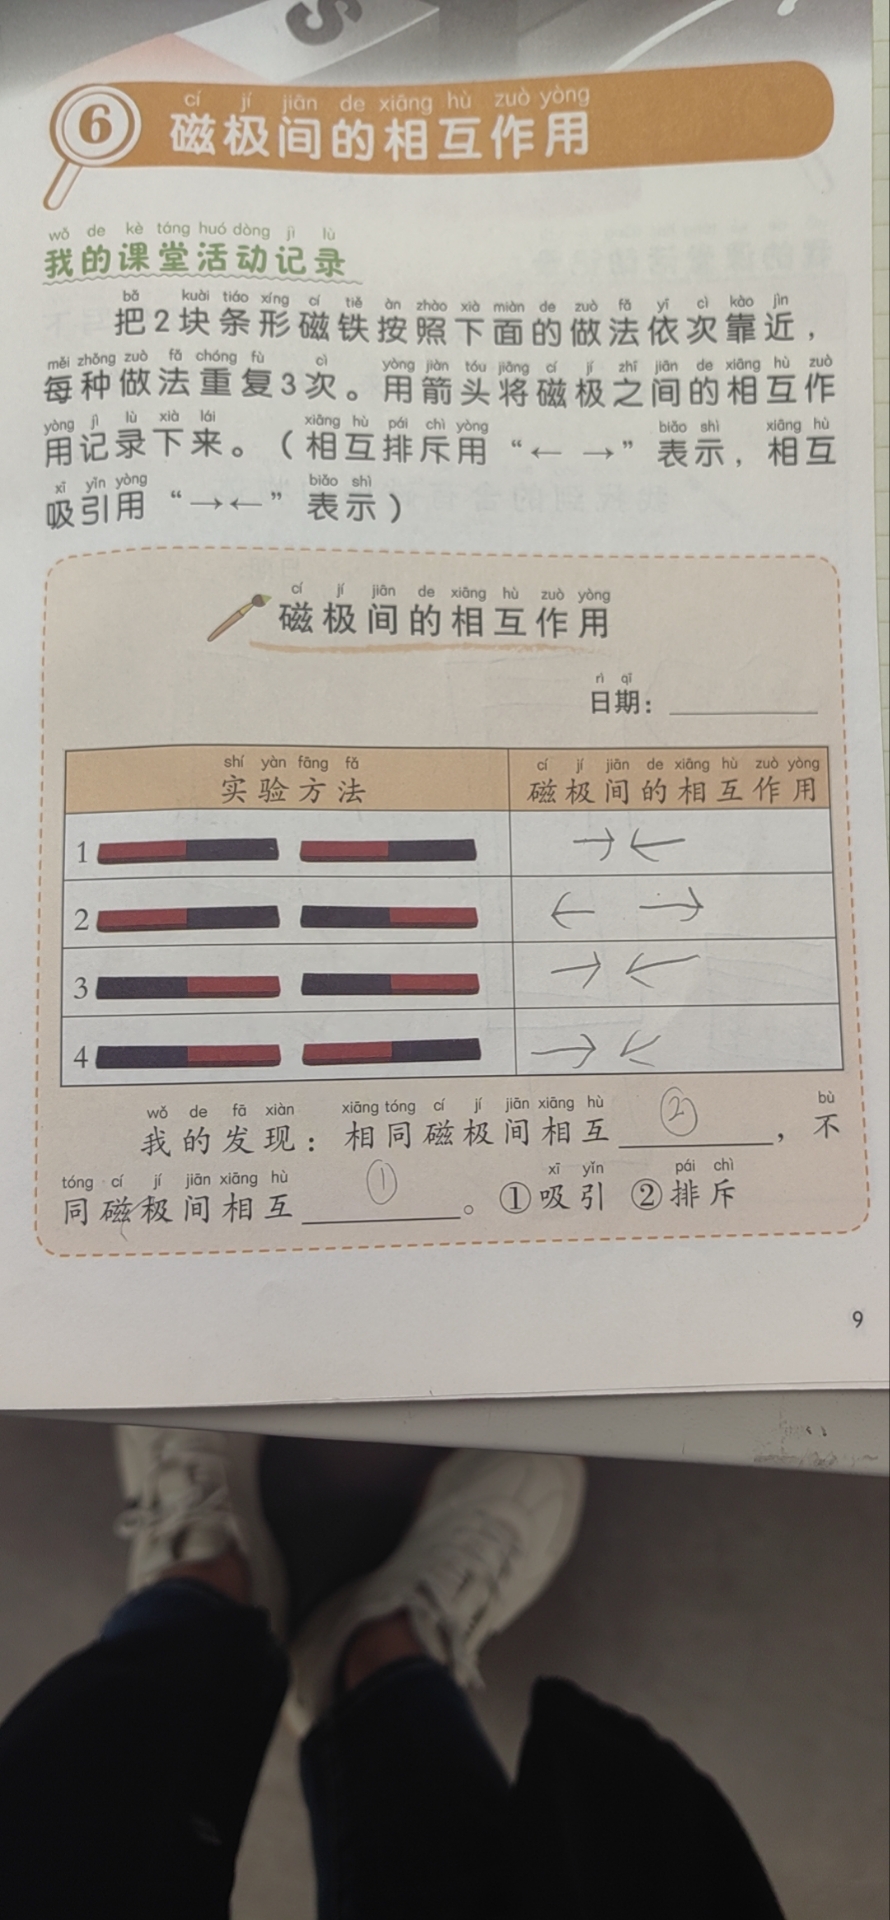 cí jí jiān de xiāng hù zuò yòng
6 磁极间的相互作用
wǒ de kè táng huó dòng jì lù
我的课堂活动记录
bǎ kuài tiáo xíng cí tiě àn zhào xià miàn de zuò fǎ yī cì kào jìn
把2块条形磁铁按照下面的做法依次靠近，
měi zhǒng zuò fǎ chóng fù cì yòng jiàn tóu jiāng cí jí zhī jiān de xiāng hù zuò
每种做法重复3次。用箭头将磁极之间的相互作
yòng jì lù xià lái xiāng hù pái chì yòng biǎo shì xiāng hù
用记录下来。（相互排斥用“← →”表示，相互
xī yǐn yòng biǎo shì
吸引用“→←”表示）
cí jí jiān de xiāng hù zuò yòng
磁极间的相互作用
rì qī
日期：
shí yàn fāng fǎ cí jí jiān de xiāng hù zuò yòng
实验方法 磁极间的相互作用
1 →←
2 ← →
3 →←
4 →←
wǒ de fā xiàn xiāng tóng cí jí jiān xiāng hù bù
我的发现：相同磁极间相互②，不
tóng cí jí jiān xiāng hù xī yǐn pái chì
同磁极间相互①。①吸引 ②排斥
9